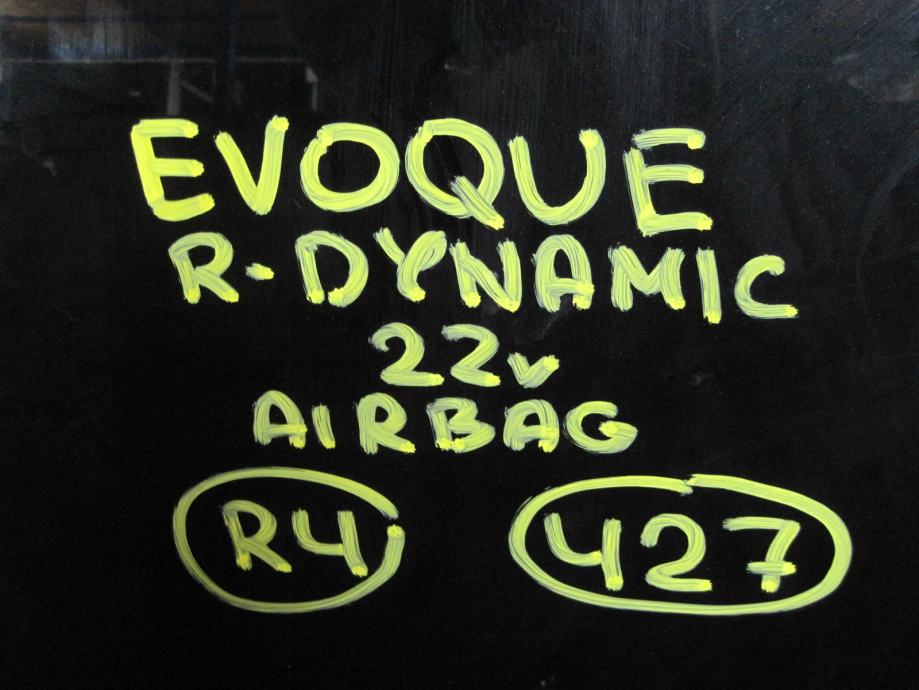 EVOQUE
R-DYNAMIC
22v
AIRBAG
R4 427